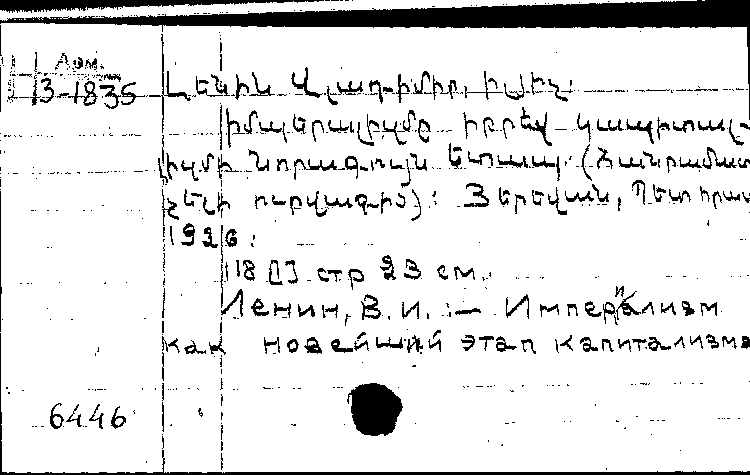 Арм.
З-1835 Լենին Վլադիմիր, Իլիչ:
իմպերալիզմը իբրև կապիտալ-
իզմի նորագույն ետապ: (Հանրամատ
չելի ուրվագիծ): Յերեվան, Պետհրատ
1926:
118 [1] стр 23 см.
Ленин, В. И. :- Империализм
как новейший этап капитализма
6446